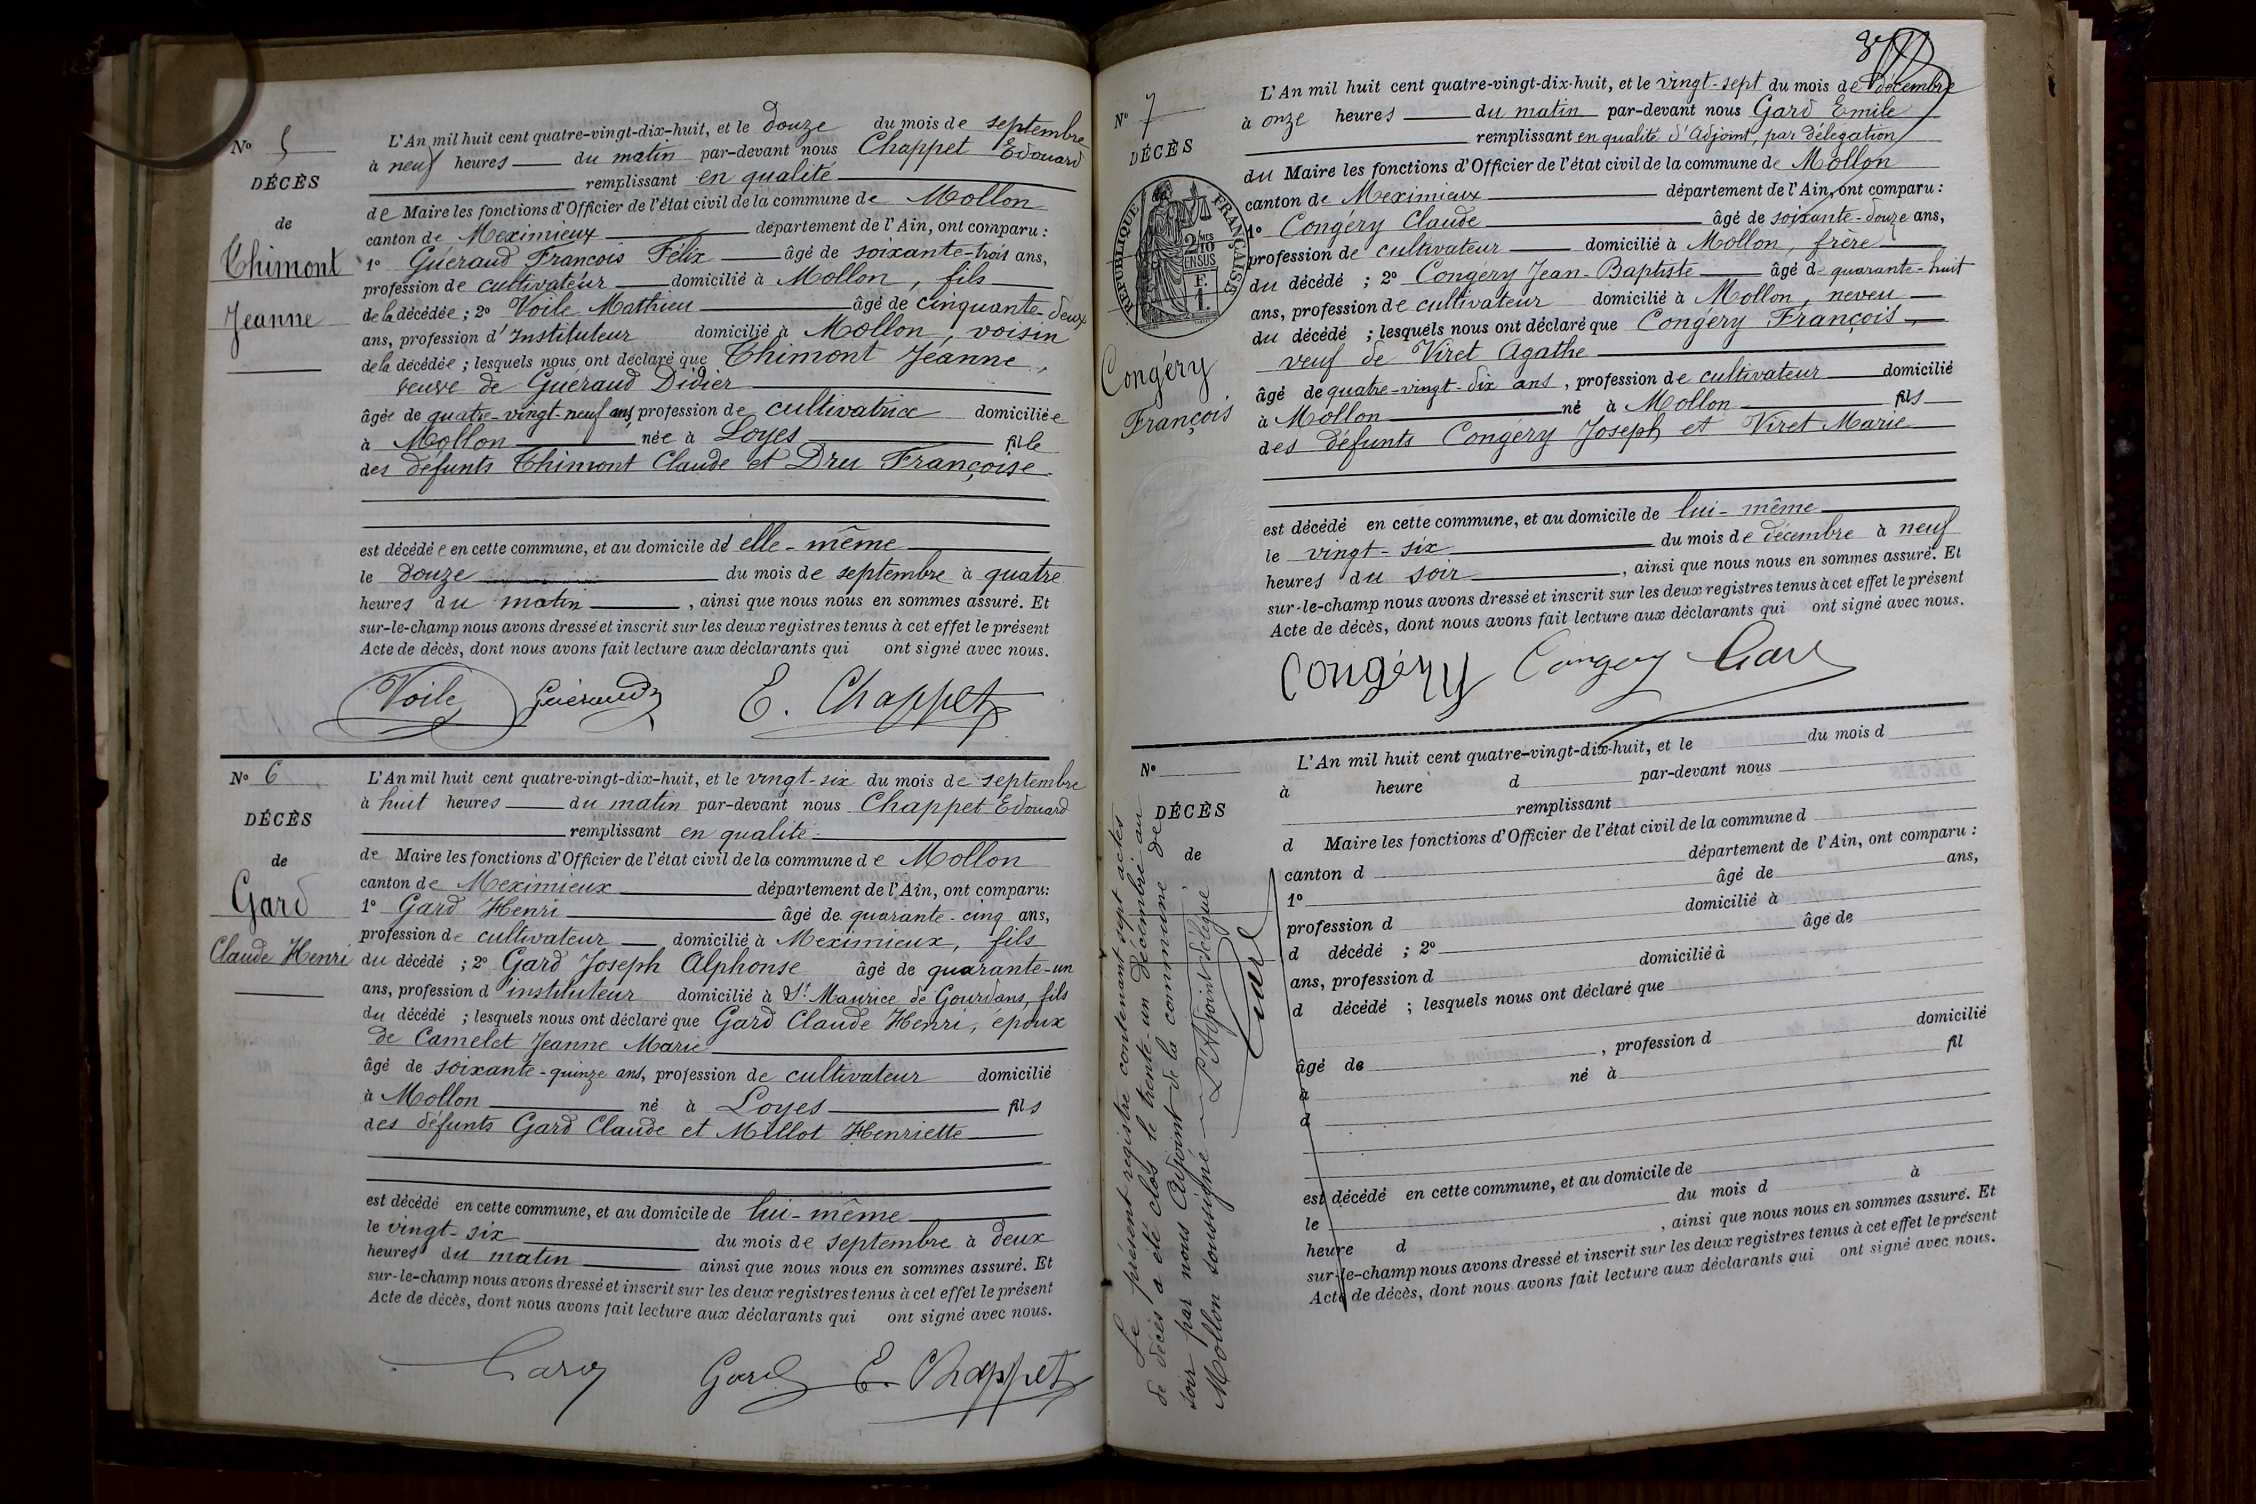 N° 5
DÉCÈS
de
Thimont
Jeanne
L'An mil huit cent quatre-vingt-dix-huit, et le douze du mois de septembre
à neuf heures du matin par-devant nous Chappet Edouard
remplissant en qualité
de Maire les fonctions d'Officier de l'état civil de la commune de Mollon
canton de Meximieux département de l'Ain, ont comparu :
1° Guéraud François Félix âgé de soixante-trois ans,
profession de cultivateur domicilié à Mollon, fils
de la décédée ; 2° Voile Mathieu âgé de cinquante-deux
ans, profession d'Instituteur domicilié à Mollon, voisin
de la décédée ; lesquels nous ont déclaré que Thimont Jeanne,
veuve de Guéraud Didier
âgée de quatre-vingt-neuf ans, profession de cultivatrice domiciliée
à Mollon née à Loyes fille
des défunts Thimont Claude et Dru Françoise
est décédée en cette commune, et au domicile de elle-même
le douze du mois de septembre à quatre
heures du matin, ainsi que nous nous en sommes assuré. Et
sur-le-champ nous avons dressé et inscrit sur les deux registres tenus à cet effet le présent
Acte de décès, dont nous avons fait lecture aux déclarants qui ont signé avec nous.
Voile Guéraud E. Chappet
N° 6
DÉCÈS
de
Gard
Claude Henri
L'An mil huit cent quatre-vingt-dix-huit, et le vingt-six du mois de septembre
à huit heures du matin par-devant nous Chappet Edouard
remplissant en qualité
de Maire les fonctions d'Officier de l'état civil de la commune de Mollon
canton de Meximieux département de l'Ain, ont comparu:
1° Gard Henri âgé de quarante-cinq ans,
profession de cultivateur domicilié à Meximieux, fils
du décédé ; 2° Gard Joseph Alphonse âgé de quarante-un
ans, profession d'instituteur domicilié à St Maurice de Gourdans, fils
du décédé ; lesquels nous ont déclaré que Gard Claude Henri, époux
de Camelet Jeanne Marie
âgé de soixante-quinze ans, profession de cultivateur domicilié
à Mollon né à Loyes fils
des défunts Gard Claude et Millot Henriette
est décédé en cette commune, et au domicile de lui-même
le vingt-six du mois de septembre à deux
heures du matin ainsi que nous nous en sommes assuré. Et
sur-le-champ nous avons dressé et inscrit sur les deux registres tenus à cet effet le présent
Acte de décès, dont nous avons fait lecture aux déclarants qui ont signé avec nous.
Gard Gard E. Chappet
N° 7
DÉCÈS
RÉPUBLIQUE FRANÇAISE
2/10 MES
EN SUS
1 F.
Congéry
François
L'An mil huit cent quatre-vingt-dix-huit, et le vingt-sept du mois de décembre
à onze heures du matin par-devant nous Gard Emile
remplissant en qualité d'Adjoint, par délégation
du Maire les fonctions d'Officier de l'état civil de la commune de Mollon
canton de Meximieux département de l'Ain, ont comparu :
1° Congéry Claude âgé de soixante-douze ans,
profession de cultivateur domicilié à Mollon, frère
du décédé ; 2° Congéry Jean-Baptiste âgé de quarante-huit
ans, profession de cultivateur domicilié à Mollon, neveu
du décédé ; lesquels nous ont déclaré que Congéry François,
veuf de Viret Agathe
âgé de quatre-vingt-dix ans, profession de cultivateur domicilié
à Mollon né à Mollon fils
des défunts Congéry Joseph et Viret Marie
est décédé en cette commune, et au domicile de lui-même
le vingt-six du mois de décembre à neuf
heures du soir, ainsi que nous nous en sommes assuré. Et
sur-le-champ nous avons dressé et inscrit sur les deux registres tenus à cet effet le présent
Acte de décès, dont nous avons fait lecture aux déclarants qui ont signé avec nous.
Congéry Congéry Gard
N°
DÉCÈS
de
L'An mil huit cent quatre-vingt-dix-huit, et le du mois d
à heure d par-devant nous
remplissant
d Maire les fonctions d'Officier de l'état civil de la commune d
canton d département de l'Ain, ont comparu :
1° âgé de ans,
profession d domicilié à
d décédé ; 2° âgé de
ans, profession d domicilié à
d décédé ; lesquels nous ont déclaré que
âgé de , profession d domicilié
à né à fil
d
est décédé en cette commune, et au domicile de
le du mois d à
heure d , ainsi que nous nous en sommes assuré. Et
sur-le-champ nous avons dressé et inscrit sur les deux registres tenus à cet effet le présent
Acte de décès, dont nous avons fait lecture aux déclarants qui ont signé avec nous.
Le présent registre contenant sept actes
de décès a été clos le trente-un décembre au
soir par nous Adjoint de la commune de
Mollon soussigné L'Adjoint délégué
Gard